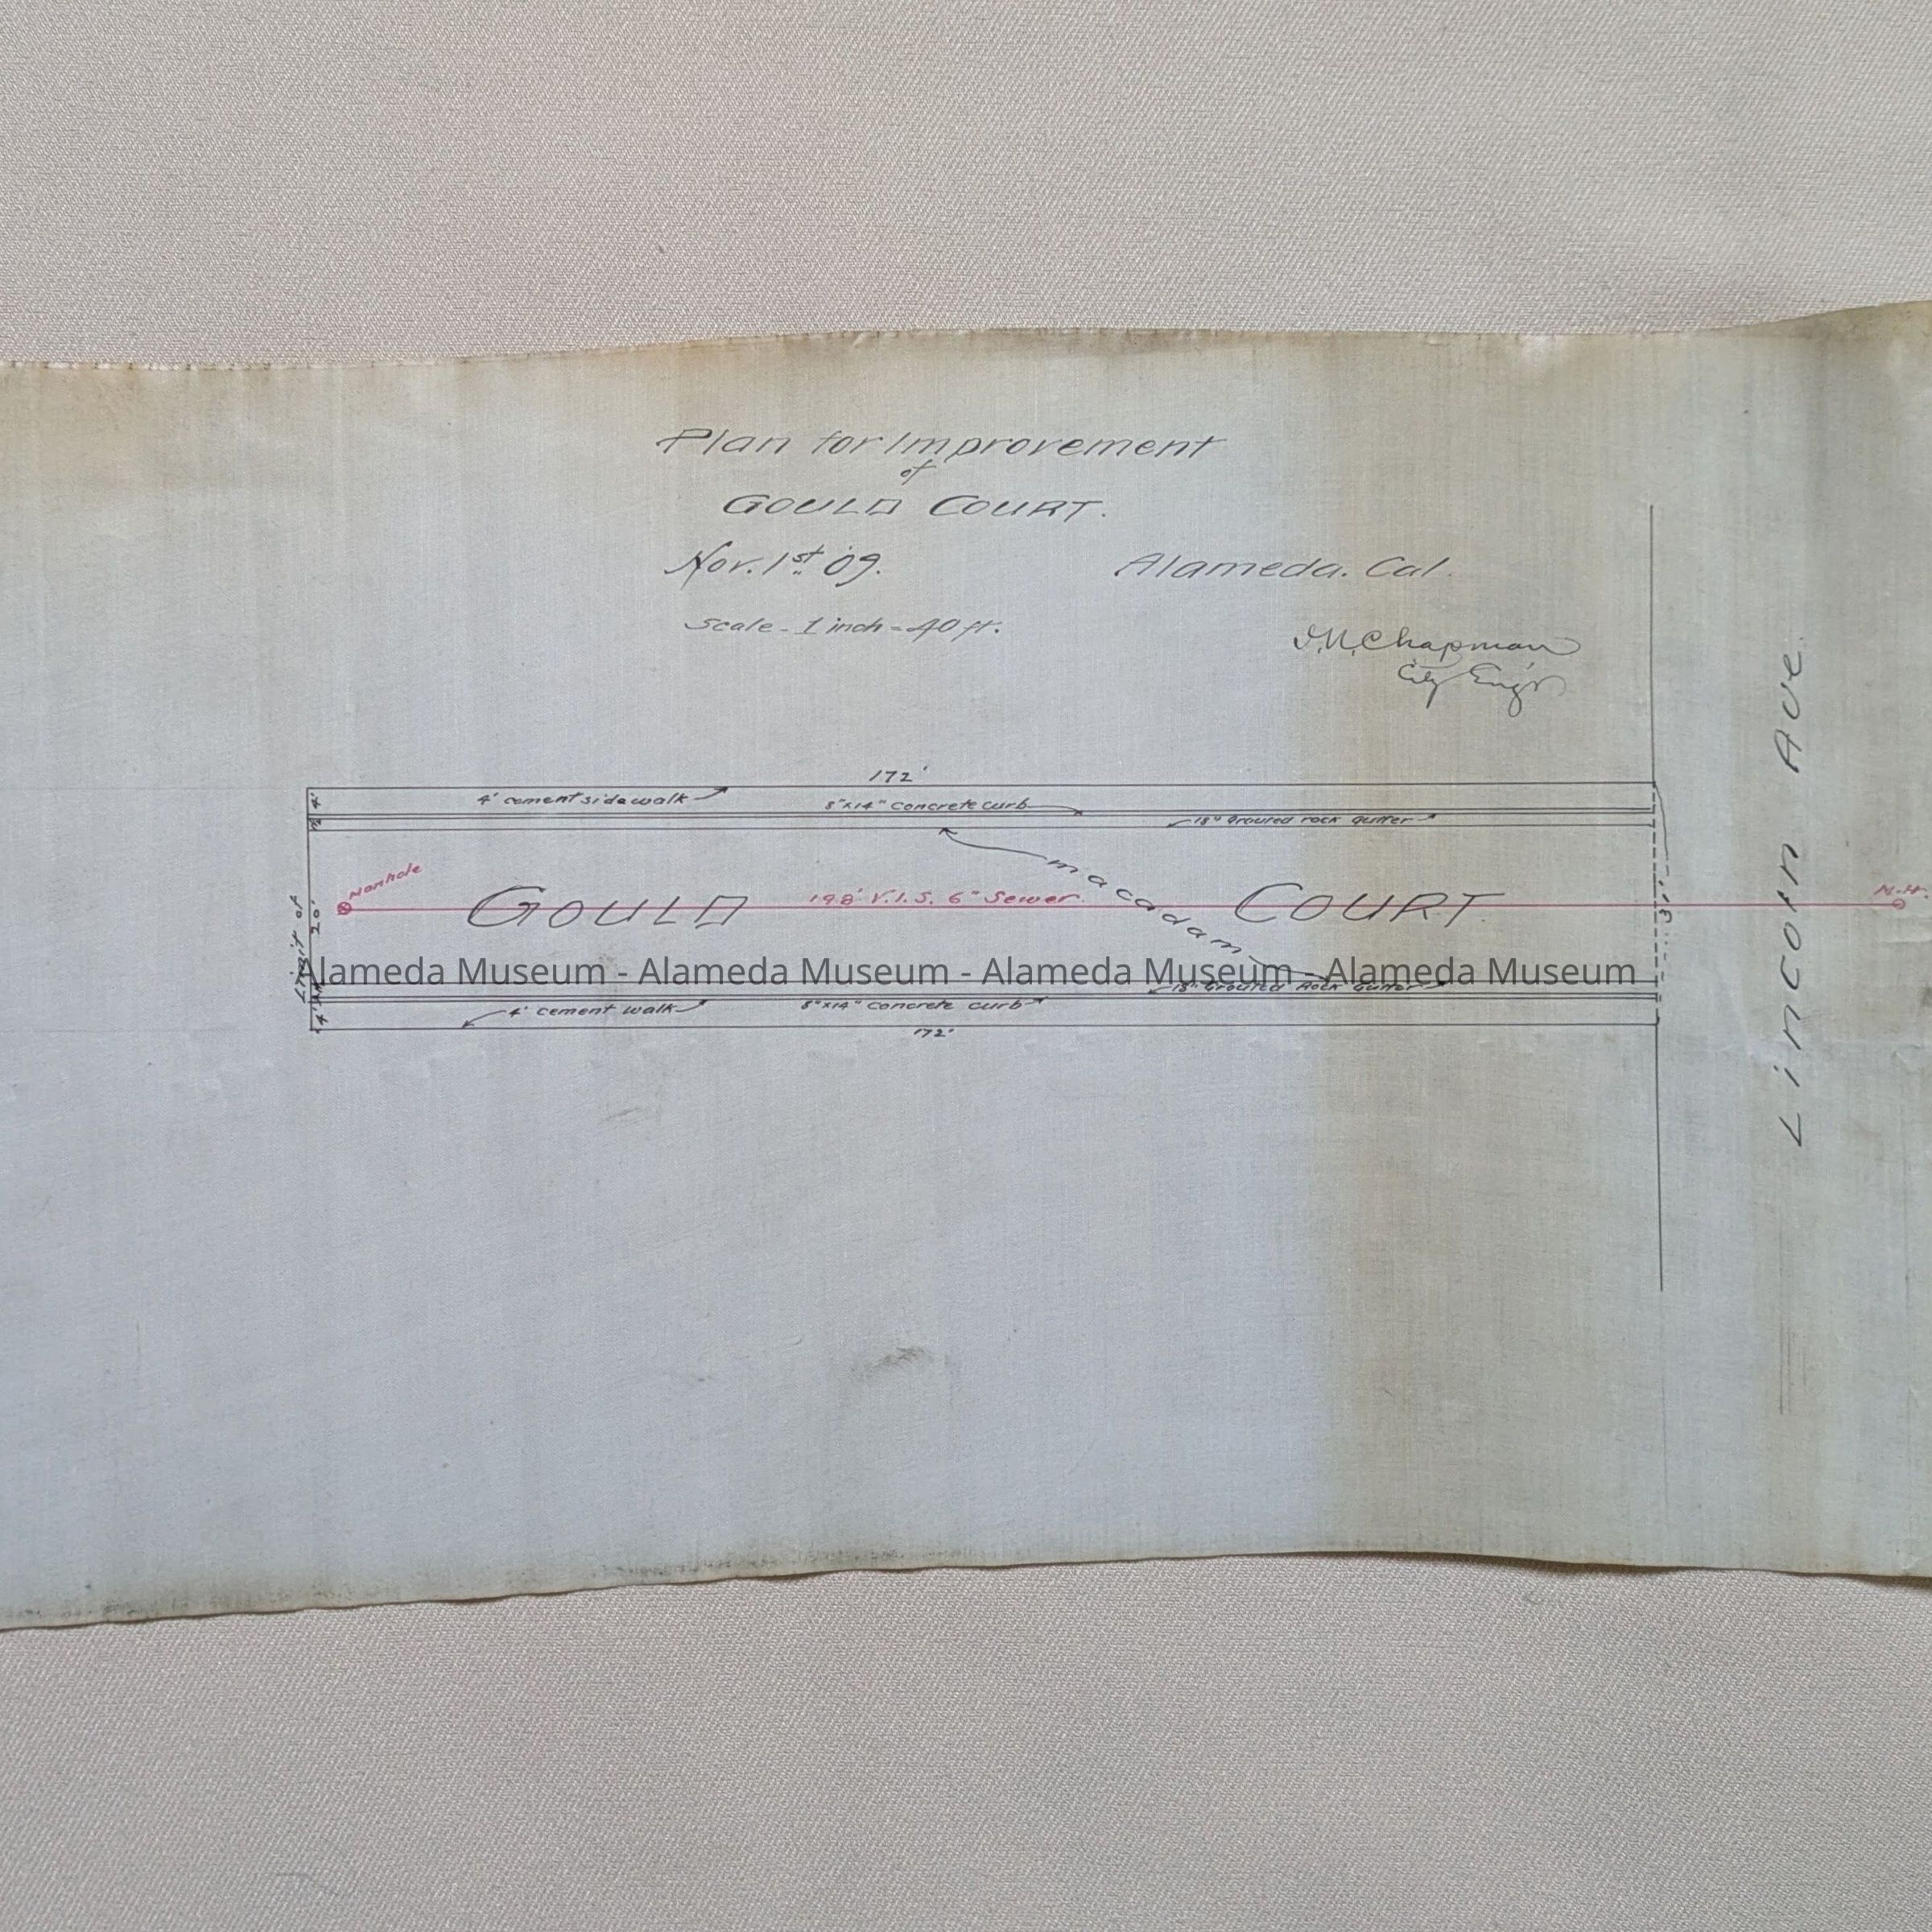 Plan for Improvement
of
GOULD COURT.
Nov. 1st '09.
Alameda. Cal.
Scale - 1 inch = 40 ft.
Chapman
City Eng'r
172'
4'
4' cement sidewalk
8"x14" Concrete curb
18" Grouted rock gutter
macadam
Manhole
GOULD COURT.
198' V.I.S. 6" Sewer.
M.H.
Limit of
20'
31'
Lincoln Ave.
Alameda Museum - Alameda Museum - Alameda Museum - Alameda Museum
18" Grouted Rock Gutter
4'
4' cement walk
8"x14" Concrete curb
172'